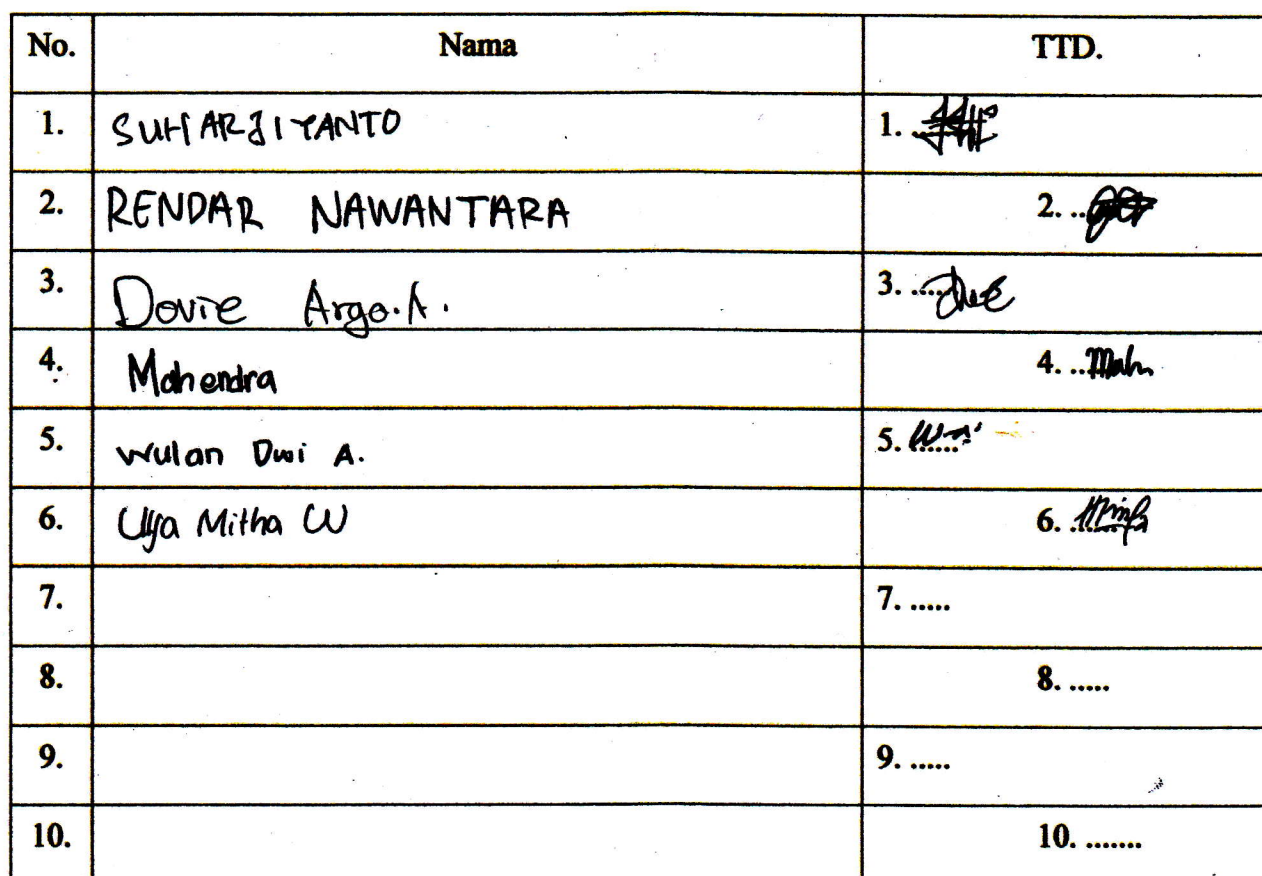 No. Nama TTD.
1. SUHARJIYANTO 1.
2. RENDAR NAWANTARA 2. ..
3. Dovie Argo.A. 3. .....
4. Mahendra 4. ..Mah
5. Wulan Dwi A. 5. ......
6. Ulya Mitha W 6. ......
7. 7. .....
8. 8. .....
9. 9. .....
10. 10. .......